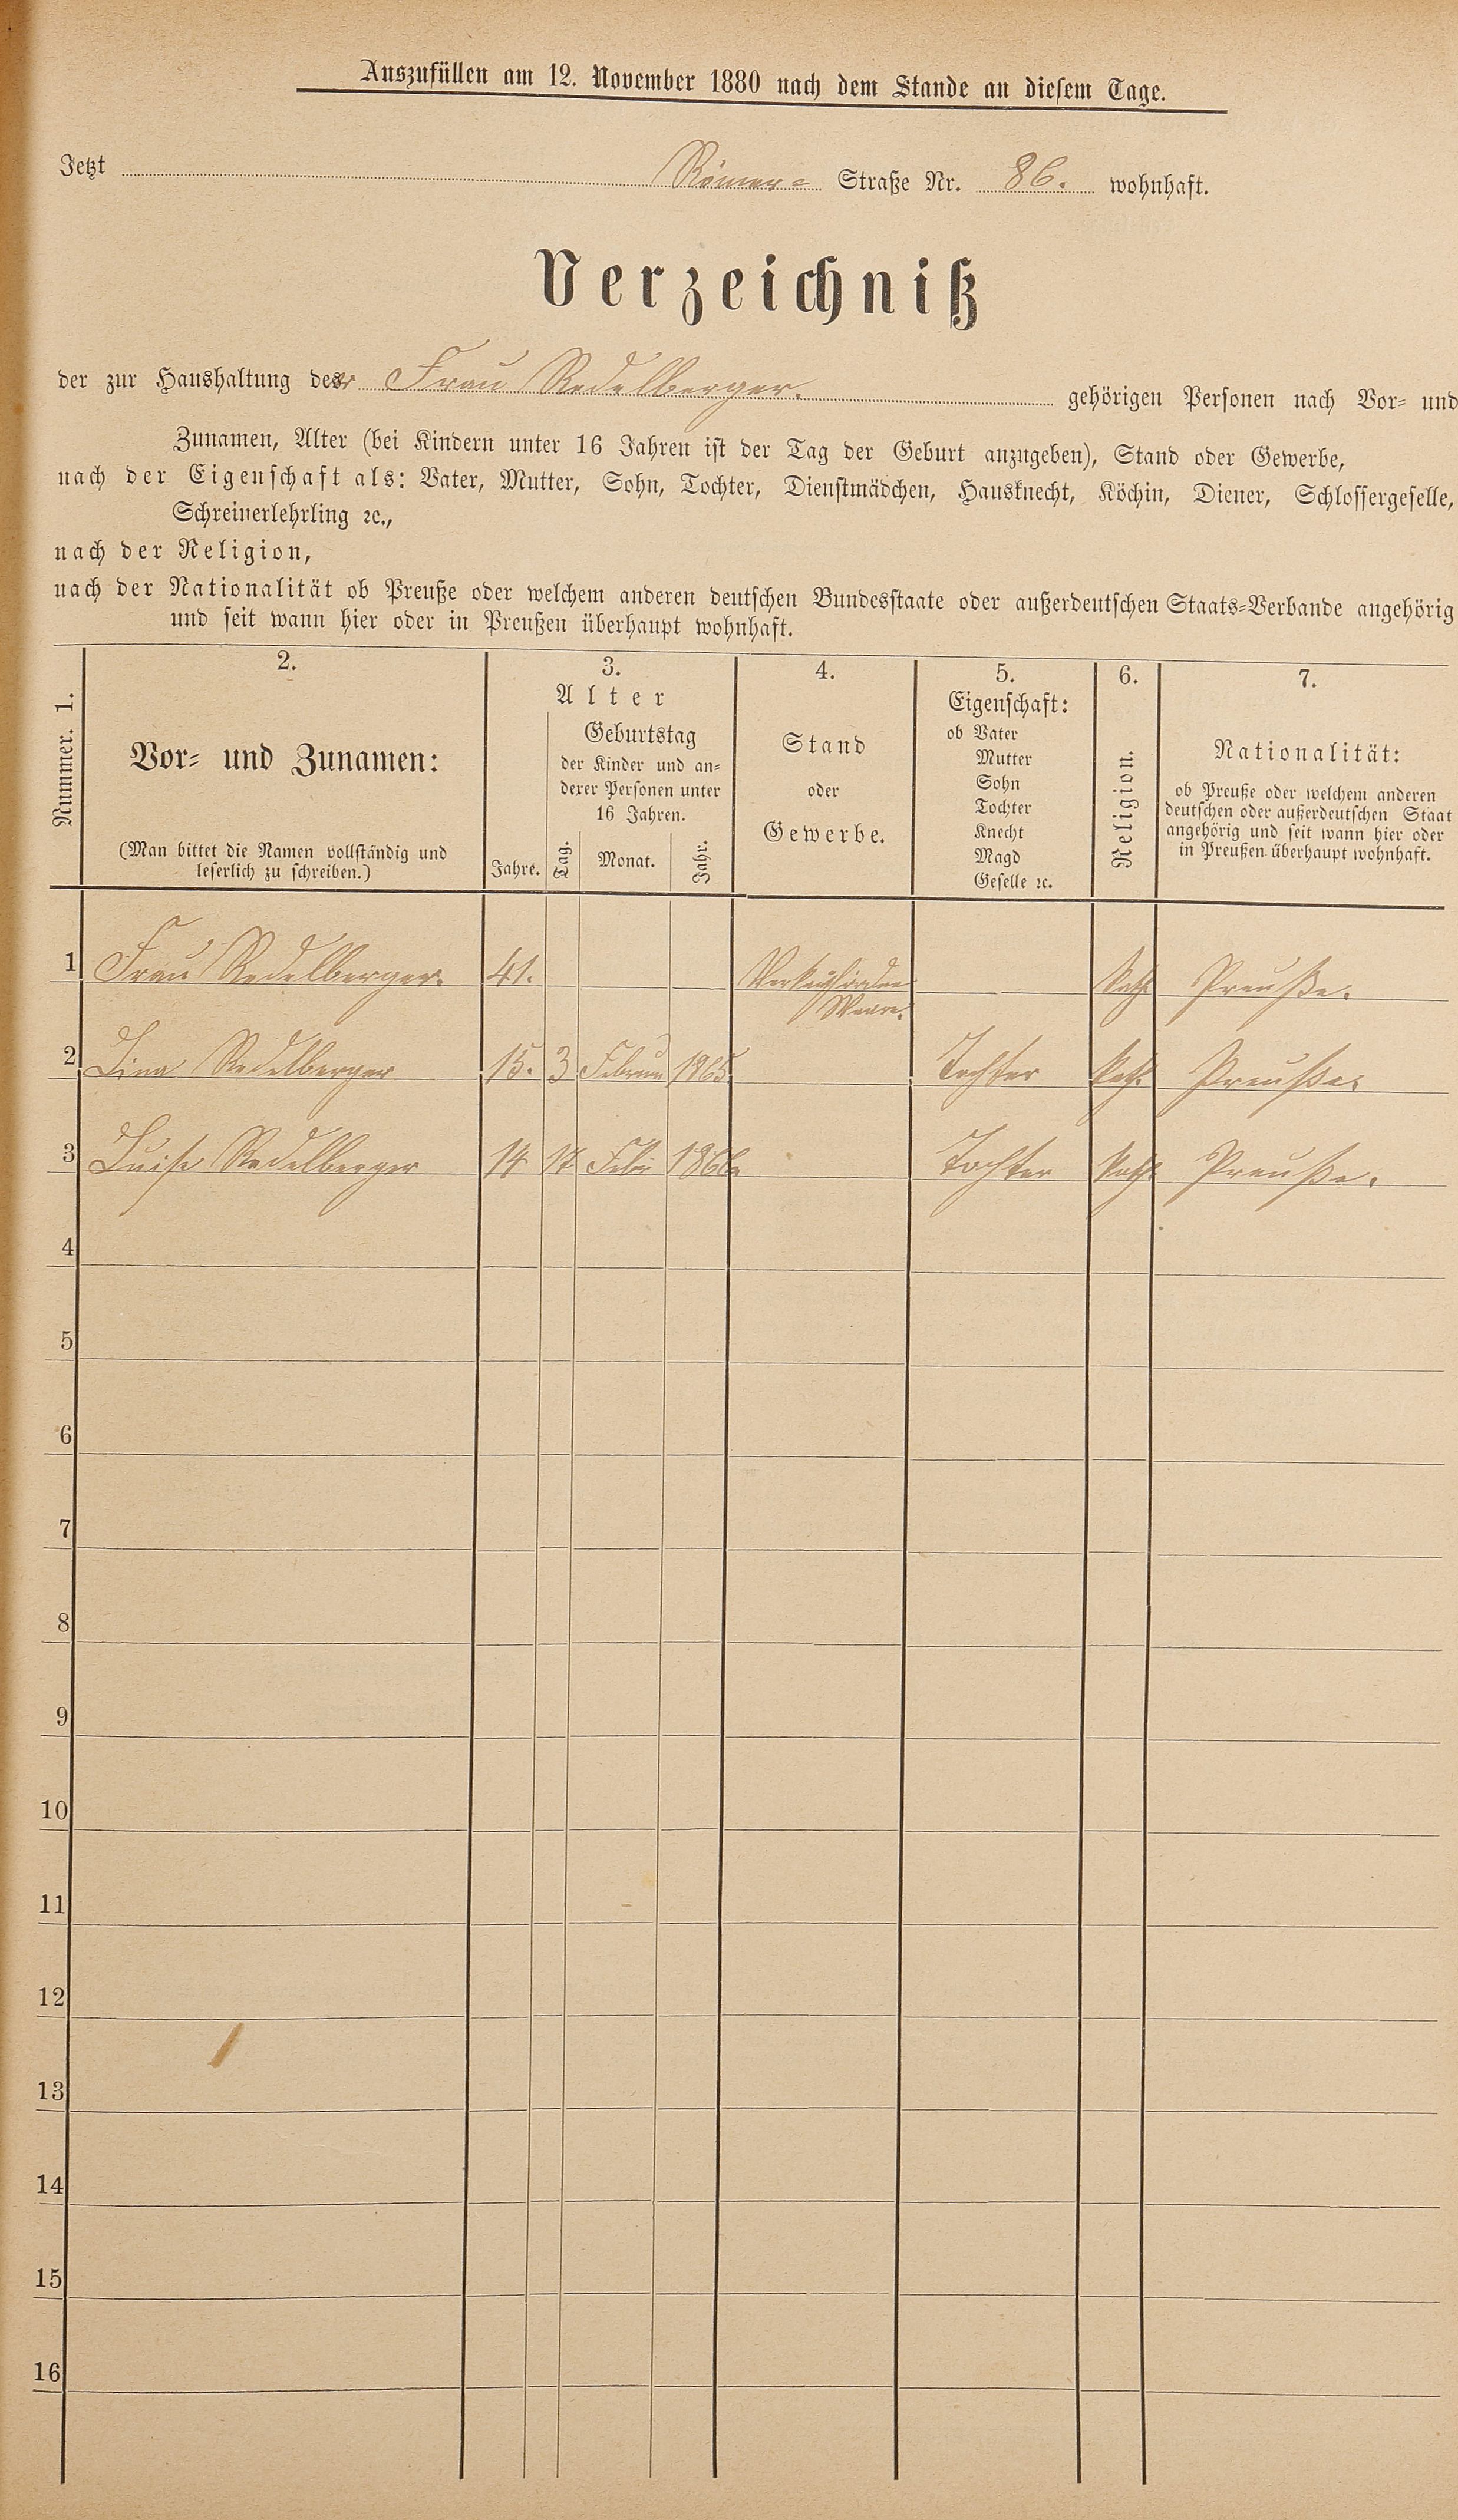 Auszufüllen am 12. November 1880 nach dem Stande an diesem Tage.
Jetzt Römer= Straße Nr. 86. wohnhaft.
Verzeichniß
der zur Haushaltung der Frau Redelberger. gehörigen Personen nach Vor= und
Zunamen, Alter (bei Kindern unter 16 Jahren ist der Tag der Geburt anzugeben), Stand oder Gewerbe,
nach der Eigenschaft als: Vater, Mutter, Sohn, Tochter, Dienstmädchen, Hausknecht, Köchin, Diener, Schlossergeselle,
Schreinerlehrling ꝛc.,
nach der Religion,
nach der Nationalität ob Preuße oder welchem anderen deutschen Bundesstaate oder außerdeutschen Staats=Verbande angehörig
und seit wann hier oder in Preußen überhaupt wohnhaft.
Nummer. 1.
2.
Vor= und Zunamen:
(Man bittet die Namen vollständig und
leserlich zu schreiben.)
3.
Alter
Geburtstag
der Kinder und an=
derer Personen unter
16 Jahren.
Jahre. Tag. Monat. Jahr.
4.
Stand
oder
Gewerbe.
5.
Eigenschaft:
ob Vater
Mutter
Sohn
Tochter
Knecht
Magd
Geselle ꝛc.
6.
Religion.
7.
Nationalität:
ob Preuße oder welchem anderen
deutschen oder außerdeutschen Staat
angehörig und seit wann hier oder
in Preußen überhaupt wohnhaft.
1 Frau Redelberger. 41. Kath. Preuße.
Waare.
2 Lina Redelberger 15. 3 Februar 1865 Tochter Kath. Preuße.
3 Luise Redelberger 14 17 Febr 1866 Tochter Kath. Preuße.
4
5
6
7
8
9
10
11
12
13
14
15
16